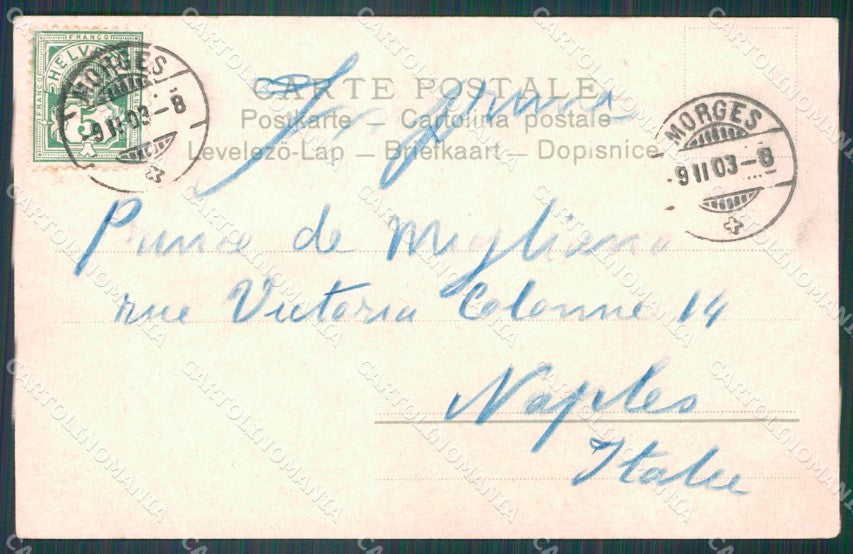 FRANCO
HELVETIA
5
MORGES
-9 II 03 - 8
CARTE POSTALE
Postkarte – Cartolina postale
Levelezö-Lap – Briefkaart – Dopisnice
MORGES
9 II 03 - 8
Prince de Migliano
rue Victoria Colonne 14
Naples
Italie
CARTOLINOMANIA